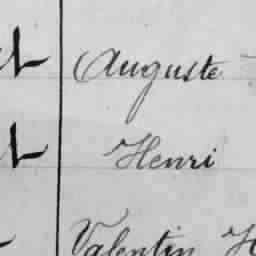 Auguste
Henri
Valentin H